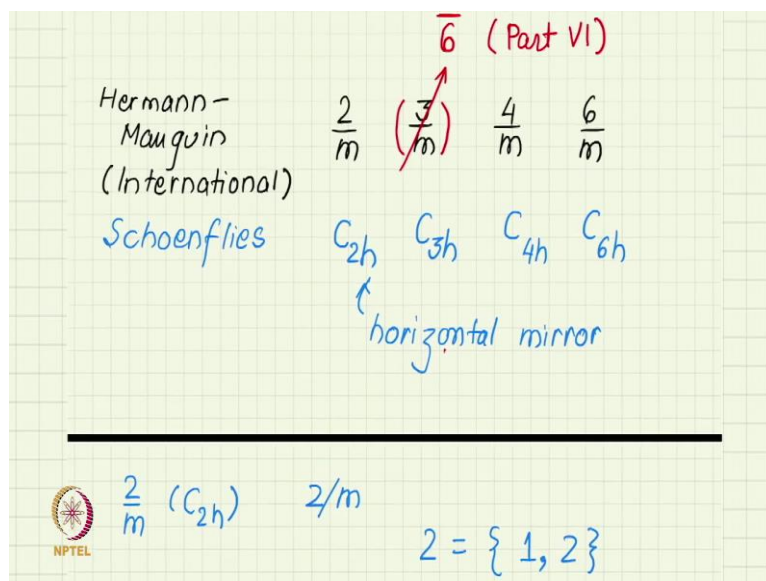 6̅ (Part VI)
Hermann-
Mauguin
(International)
2/m (3/m) 4/m 6/m
Schoenflies C₂ₕ C₃ₕ C₄ₕ C₆ₕ
horizontal mirror
2/m (C₂ₕ) 2/m
2 = { 1, 2 }
NPTEL